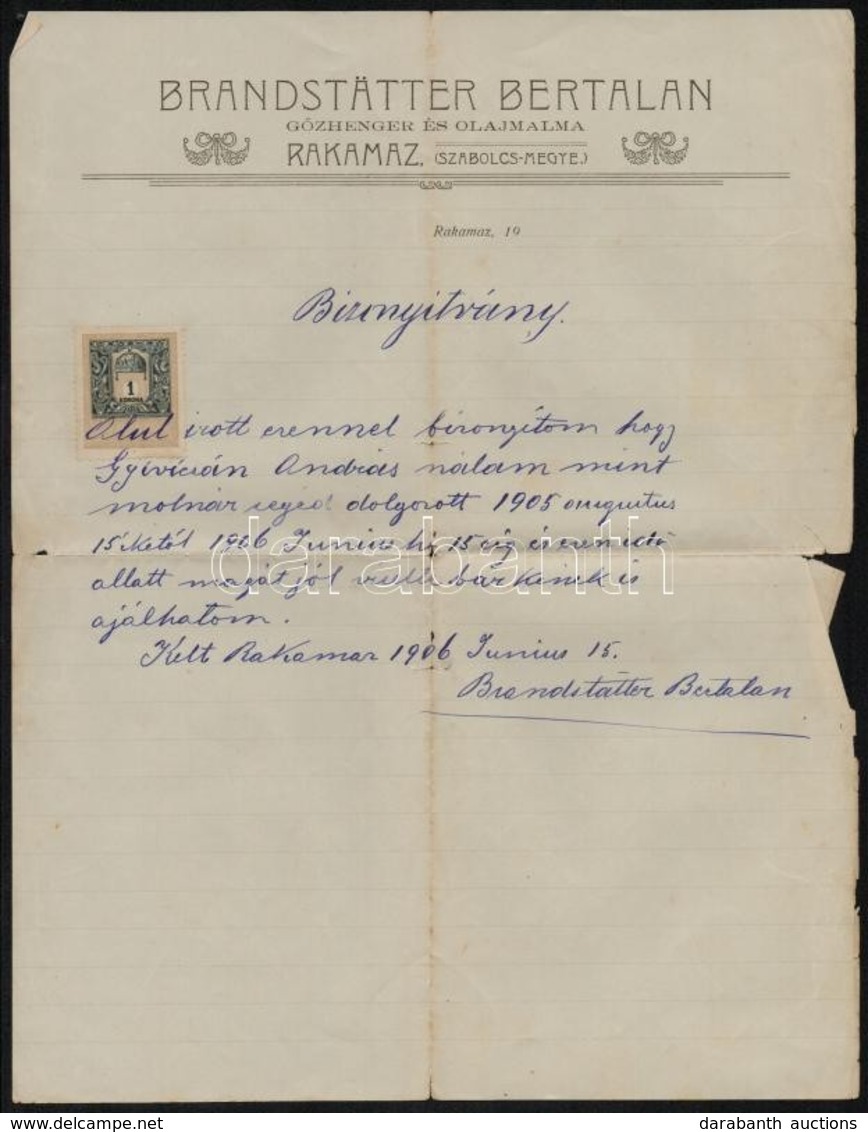 BRANDSTÄTTER BERTALAN
GŐZHENGER ÉS OLAJMALMA
RAKAMAZ, (SZABOLCS-MEGYE.)
Rakamaz, 19
Bizonyitvány.
1
KORONA
Alul irott ezennel bizonyitom hogy
András nálam mint
molnár segéd dolgozott 1905 augustus
15 iketől 1906 Junius hó 15 ig és ezen idő
allatt magát jól viselte bárkinek is
ajálhatom.
Kelt Rakamaz 1906 Junius 15.
Brandstätter Bertalan
darabanth
delcampe.net
darabanth auctions